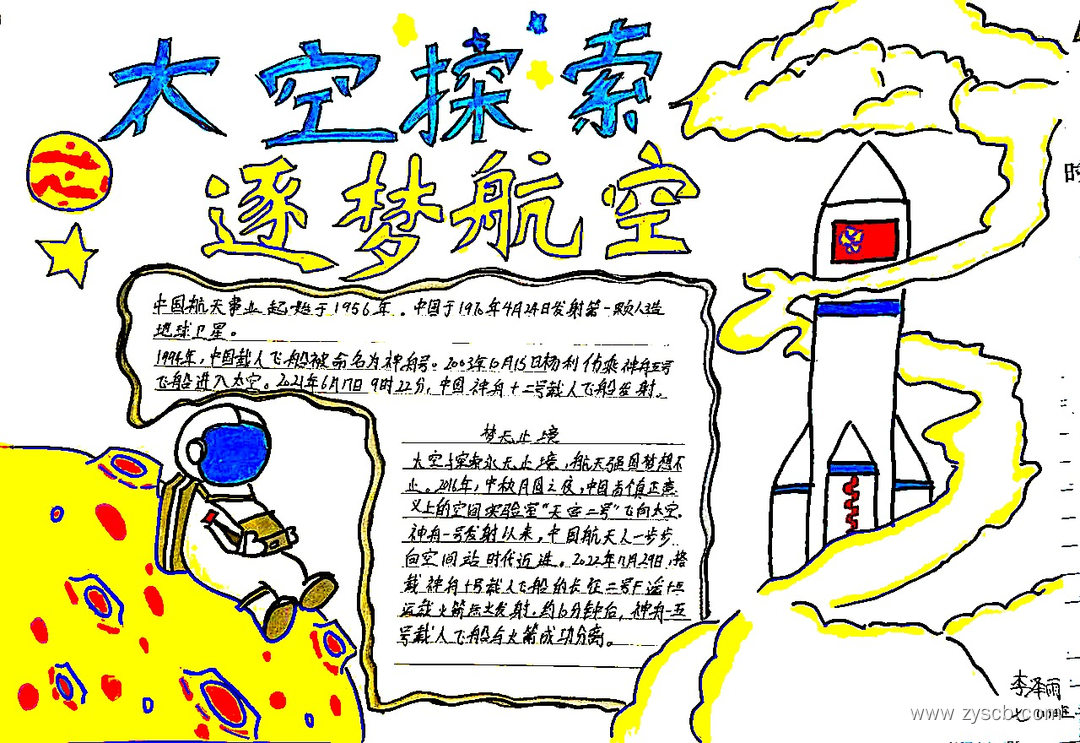 太空探索
逐梦航空
中国航天事业起始于1956年。中国于1970年4月24日发射第一颗人造
地球卫星。
1994年,中国载人飞船被命名为神舟号。2003年10月15日杨利伟乘神舟五号
飞船进入太空。2021年6月17日9时22分,中国神舟十二号载人飞船发射。
梦无止境
太空探索永无止境,航天强国梦想不
止。2016年,中秋月圆之夜,中国首个真正意
义上的空间实验室"天宫二号"飞向太空。
神舟一号发射以来,中国航天人一步步
向空间站时代迈进。2022年11月29日,搭
载神舟十号载人飞船的长征二号F遥十五
运载火箭点火发射,约10分钟后,神舟十五
号载人飞船与火箭成功分离。
李泽雨
www.zyscb.com
时